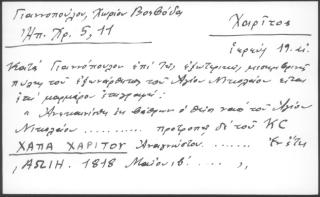 Γιαννοπούλου, Χωρίον Βουβάδες
Ἠπ. Χρ. 5, 11
Χαρῖτος
19. αἰ.
Κατά Γιαννόπουλον ἐπί τῆς ἐξωτερικῆς μεσημβρινῆς
πύλης τοῦ ἐξωνάρθηκος τοῦ Ἁγίου Νικολάου εἶναι
ἐπί μαρμάρου ἐπιγραφή :
" Ἀνεκαινίσθη ἐκ βάθρων ὁ θεῖος ναός τοῦ Ἁγίου
Νικολάου ........... προτροπῇ δέ τοῦ ΚC
ΧΑΠΑ ΧΑΡΙΤΟΥ Ἀναγνώστου ...... Ἐν ἔτει
, ΑΩΙΗ. 1818 Μαΐου ιβ΄. .... ",